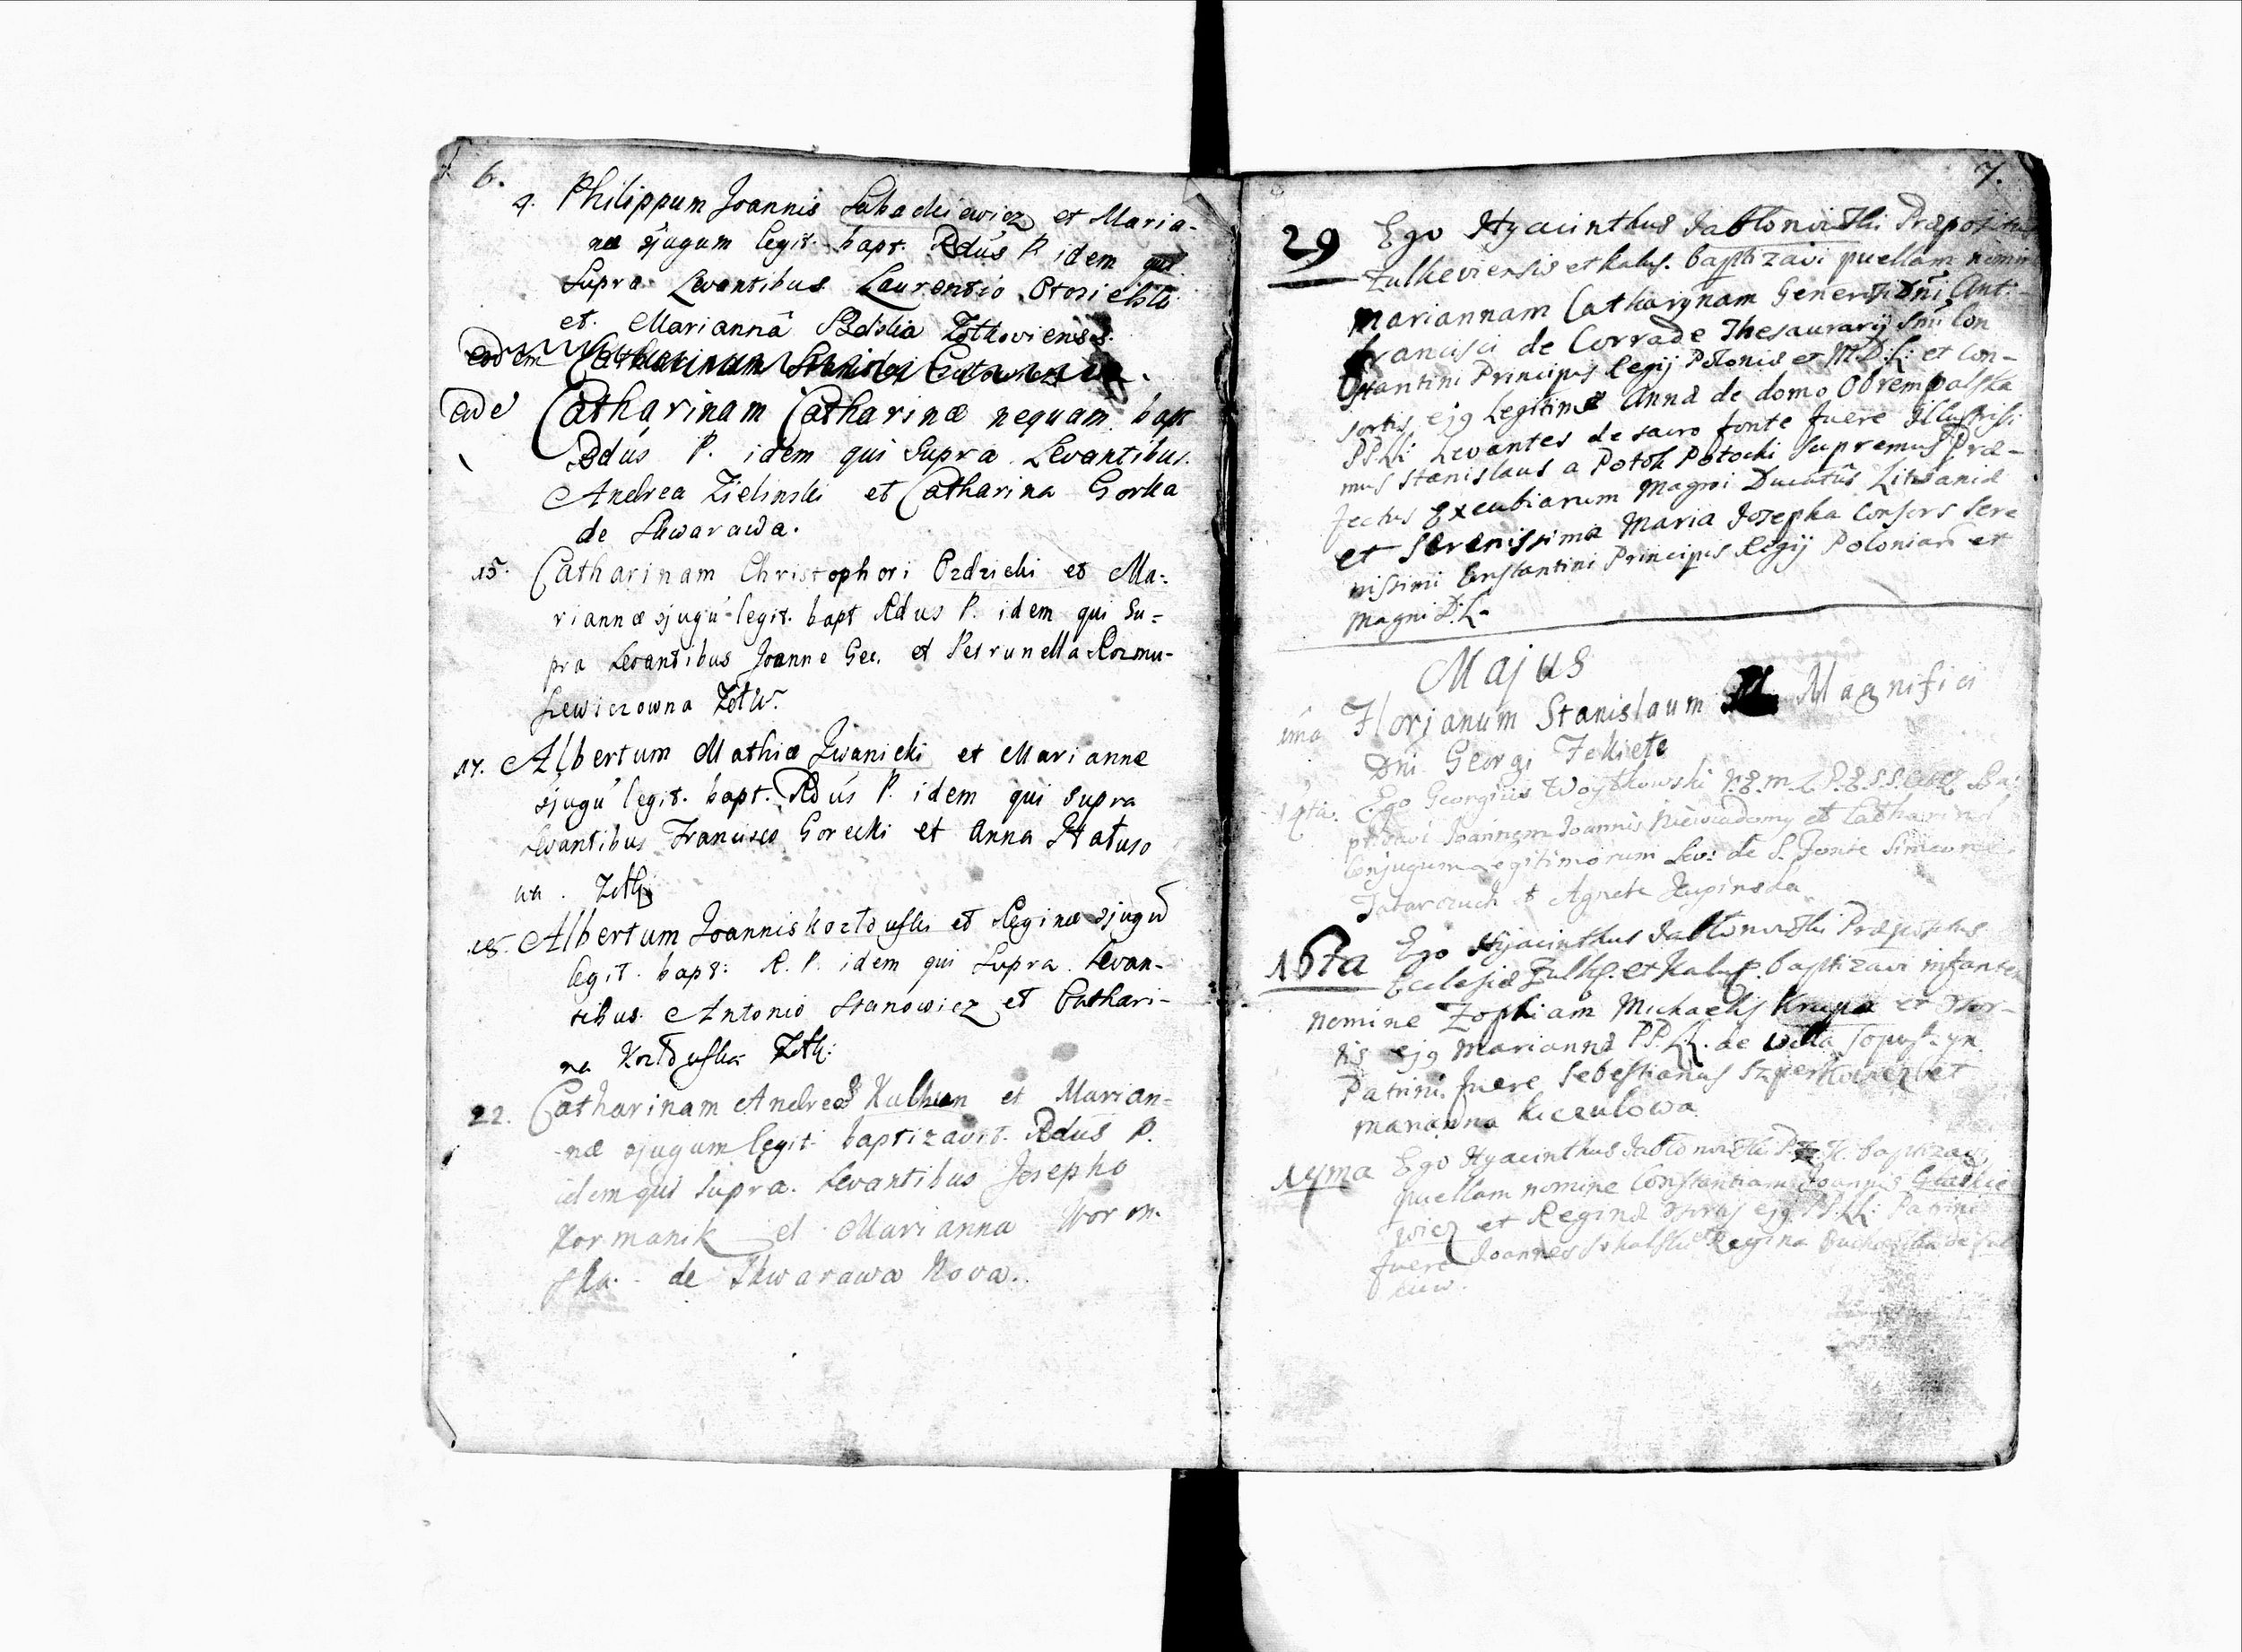 6.
4. Philippum Joannis Sabackiewicz et Maria-
næ ɔjugum legit. bapt. Rdus P. idem qui
Supra Levantibus Laurentio
et Marianna Zołkoviensis
eodem Catharinam
eode Catharinam Catharinæ nequam bapt
Rdus P. idem qui Supra Levantibus
Andrea Zielinski et Catharina Gorka
de Skwarawa.
15. Catharinam Christophori Ozdzicki et Ma:
riannæ ɔjugu legit. bapt Rdus P. idem qui Su=
pra Levantibus Joanne Gec. et Petrunella Rozmu-
Lewiczowna Zołw.
17. Albertum Mathiæ Jwanicki et Mariannæ
ɔjugu legit. bapt. Rdus P. idem qui supra
Levantibus Francisco Gorecki et Anna
wa. Zołk
18. Albertum Joannis Kozłowski et Reginæ ɔjugu
legit. bapt: R. P. idem qui Supra. Levan-
tibus Antonio Stanowicz et Cathari-
na Kozłowska Zołk:
22. Catharinam Andreæ et Marian-
næ ɔjugum legit baptizavit Rdus P.
idem qui Supra. Levantibus Josepho
Kormanik et Marianna Woron-
ska de Skwarawa Nova.
7.
29 Ego Hyacinthus Jabłonowski Præpositus
Zulkeviensis et Kalus. baptizavi puellam nomine
Mariannam Catharynam Generosi Dni Ant:
Francisci de Corrade Thesaurarij Smi Con
stantini Principis Regij Poloniæ et M.D.L: et Con-
sortis ejg Legitimæ Annæ de domo Obrempalska
PPLL: Levantes de sacro fonte fuere Illustrissi
mus Stanislaus a Potok Potocki Supremus Præ-
fectus Excubiarum Magni Ducatus Litvaniæ
et Serenissima Maria Josepha Consors Sere
nissimi Constantini Principis Regij Poloniar et
Magni D:L.
Majus
1ma Florjanum Stanislaum Magnifici
Dni Georgi Fekiete
14ta. Ego Georgius Woytkowski Ba:
ptizavi Joannem Joannis Niewiadomy et Catharinæ
Conjugum Legitimorum Lev: de S. Fonte Simeone
Tatarczuch et Agneta Krupinska
16ta Ego Hyacinthus Jabłonowski Præpositus
Ecclesiæ Zulk. et Kalus. baptizavi infantem
nomine Zophiam Michaelis Krupa et Uxor-
is ejg Mariannæ PP.LL. de villa
Patrini fuere Sebestianus et
Marianna Kiczulowa.
17ma Ego Hyacinthus Jabłonowski P.Z.K. baptizavi
puellam nomine Constantiam Joannis Gładkie
wicz et Reginæ Uxoris ejg. PP.LL: Patrini
fuere Joannes Sokalski et Regina de